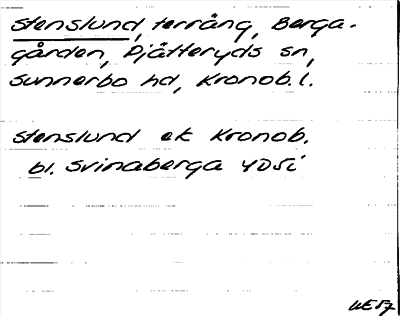 Stenslund, terräng, Berga-
gården, Pjätteryds sn,
Sunnerbo hd, Kronob.l.
Stenslund ek Kronob.
bl. Svinaberga 4D5i